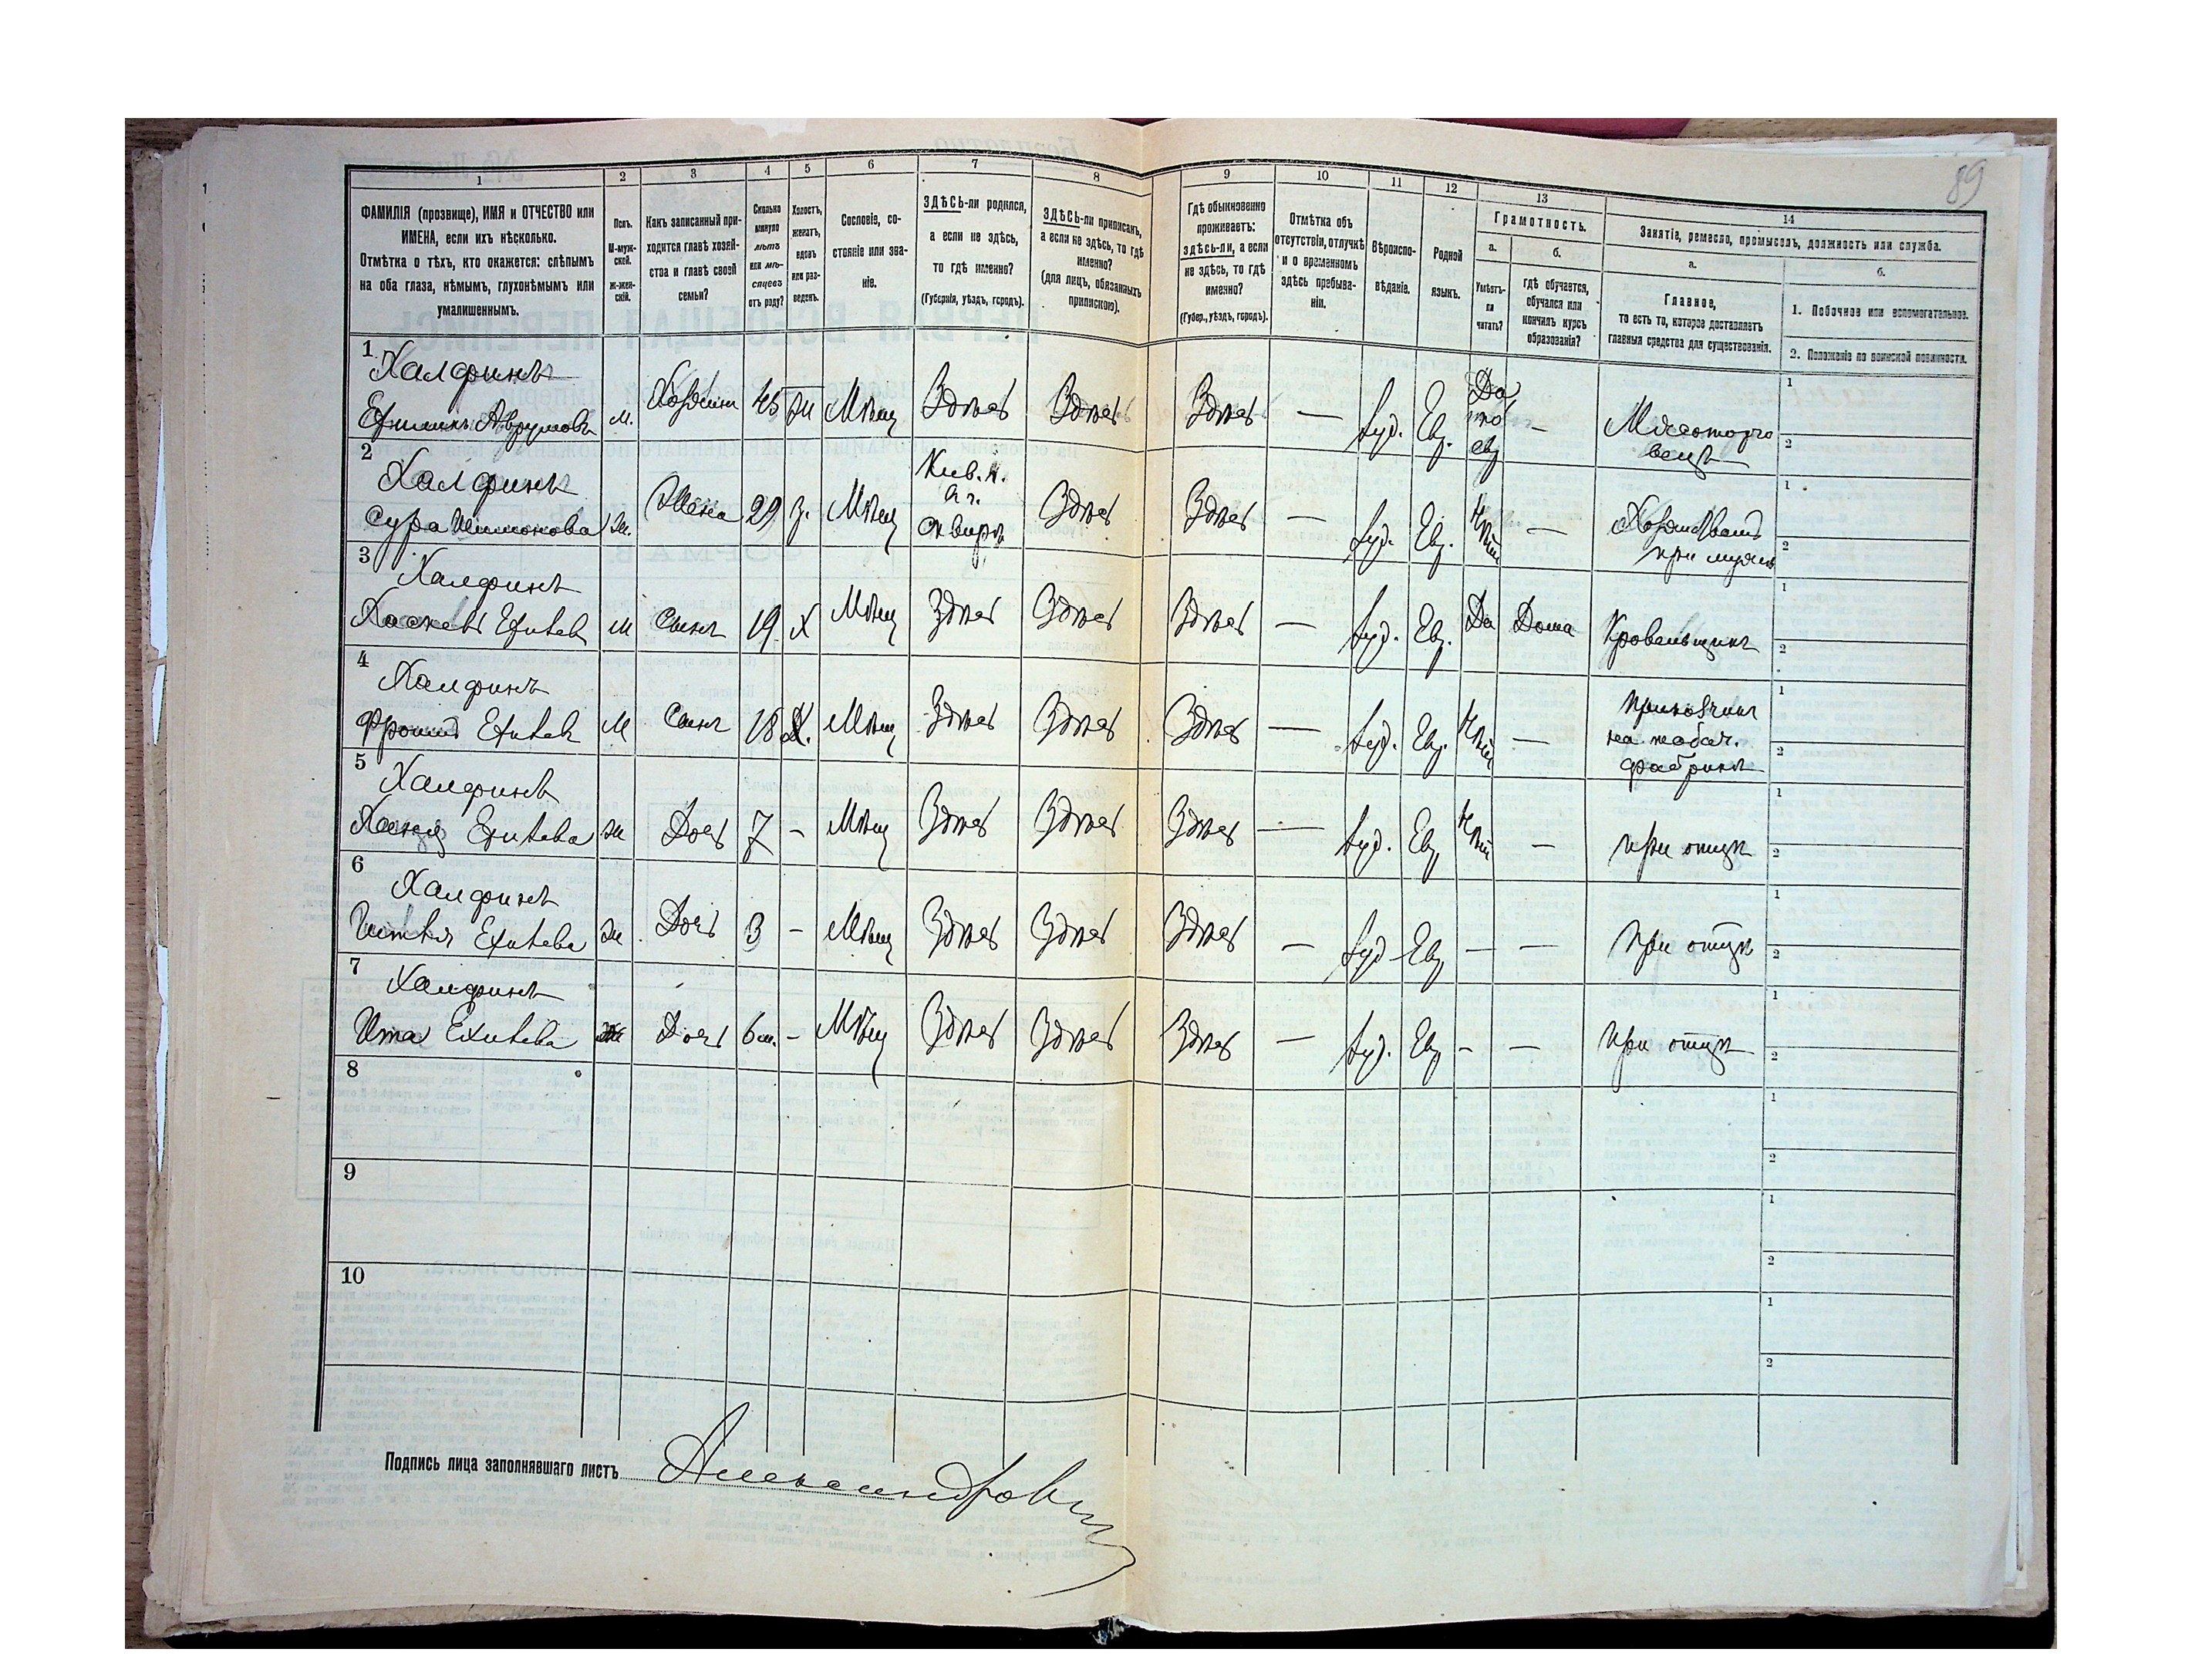 89
1 2 3 4 5 6 7 8 9 10 11 12 13 14
ФАМИЛІЯ (прозвище), ИМЯ и ОТЧЕСТВО или
ИМЕНА, если ихъ нѣсколько.
Отмѣтка о тѣхъ, кто окажется: слѣпымъ
на оба глаза, нѣмымъ, глухонѣмымъ или
умалишеннымъ.
Полъ.
М-муж-
ской.
ж-жен-
скій.
Какъ записанный при-
ходится главѣ хозяй-
ства и главѣ своей
семьи?
Сколько
минуло
лѣтъ
или мѣ-
сяцевъ
отъ роду?
Холостъ,
женатъ,
вдовъ
или раз-
веденъ.
Сословіе, со-
стояніе или зва-
ніе.
ЗДѢСЬ-ли родился,
а если не здѣсь,
то гдѣ именно?
(Губернія, уѣздъ, городъ).
ЗДѢСЬ-ли приписанъ,
а если не здѣсь, то гдѣ
именно?
(для лицъ, обязанныхъ
припискою).
Гдѣ обыкновенно
проживаетъ:
здѣсь-ли, а если
не здѣсь, то гдѣ
именно?
(Губер., уѣздъ, городъ).
Отмѣтка объ
отсутствіи, отлучкѣ
и о временномъ
здѣсь пребыва-
ніи.
Вѣроиспо-
вѣданіе.
Родной
языкъ.
Грамотность.
а.
Умѣетъ-
ли
читать?
б.
гдѣ обучается,
обучался или
кончилъ курсъ
образованія?
Занятіе, ремесло, промыселъ, должность или служба.
а.
Главное,
то есть то, которое доставляетъ
главныя средства для существованія.
б.
1. Побочное или вспомогательное.
2. Положеніе по воинской повинности.
1 Халфинъ
Аврумовъ м. Хозяинъ 45 ж Мѣщ Здѣсь Здѣсь Здѣсь — Іуд. Евр. Да по евр — Мясоторго
вецъ
1
2
2 Халфинъ
Сура Шимонова ж. Жена 29 з. Мѣщ Кіев. г. Сквира Здѣсь Здѣсь — Іуд. Евр. Нѣтъ — Хозяйства
при мужѣ
1
2
3 Халфинъ
Хаскель м Сынъ 19 х Мѣщ Здѣсь Здѣсь Здѣсь — Іуд. Евр. Да Дома Кровельщикъ
1
2
4 Халфинъ
Фроимъ м Сынъ 18 х. Мѣщ Здѣсь Здѣсь Здѣсь — Іуд. Евр. Нѣтъ — Приказчикъ
на табач.
фабрикѣ
1
2
5 Халфинъ
ж Дочь 7 - Мѣщ Здѣсь Здѣсь Здѣсь — Іуд. Евр Нѣтъ — при отцѣ
1
2
6 Халфинъ
ж Дочь 3 - Мѣщ Здѣсь Здѣсь Здѣсь — Іуд Евр — — при отцѣ
1
2
7 Халфинъ
Ита ж Дочь 6 м. - Мѣщ Здѣсь Здѣсь Здѣсь — Іуд. Евр - — при отцѣ
1
2
8
1
2
9
1
2
10
1
2
Подпись лица заполнявшаго листъ